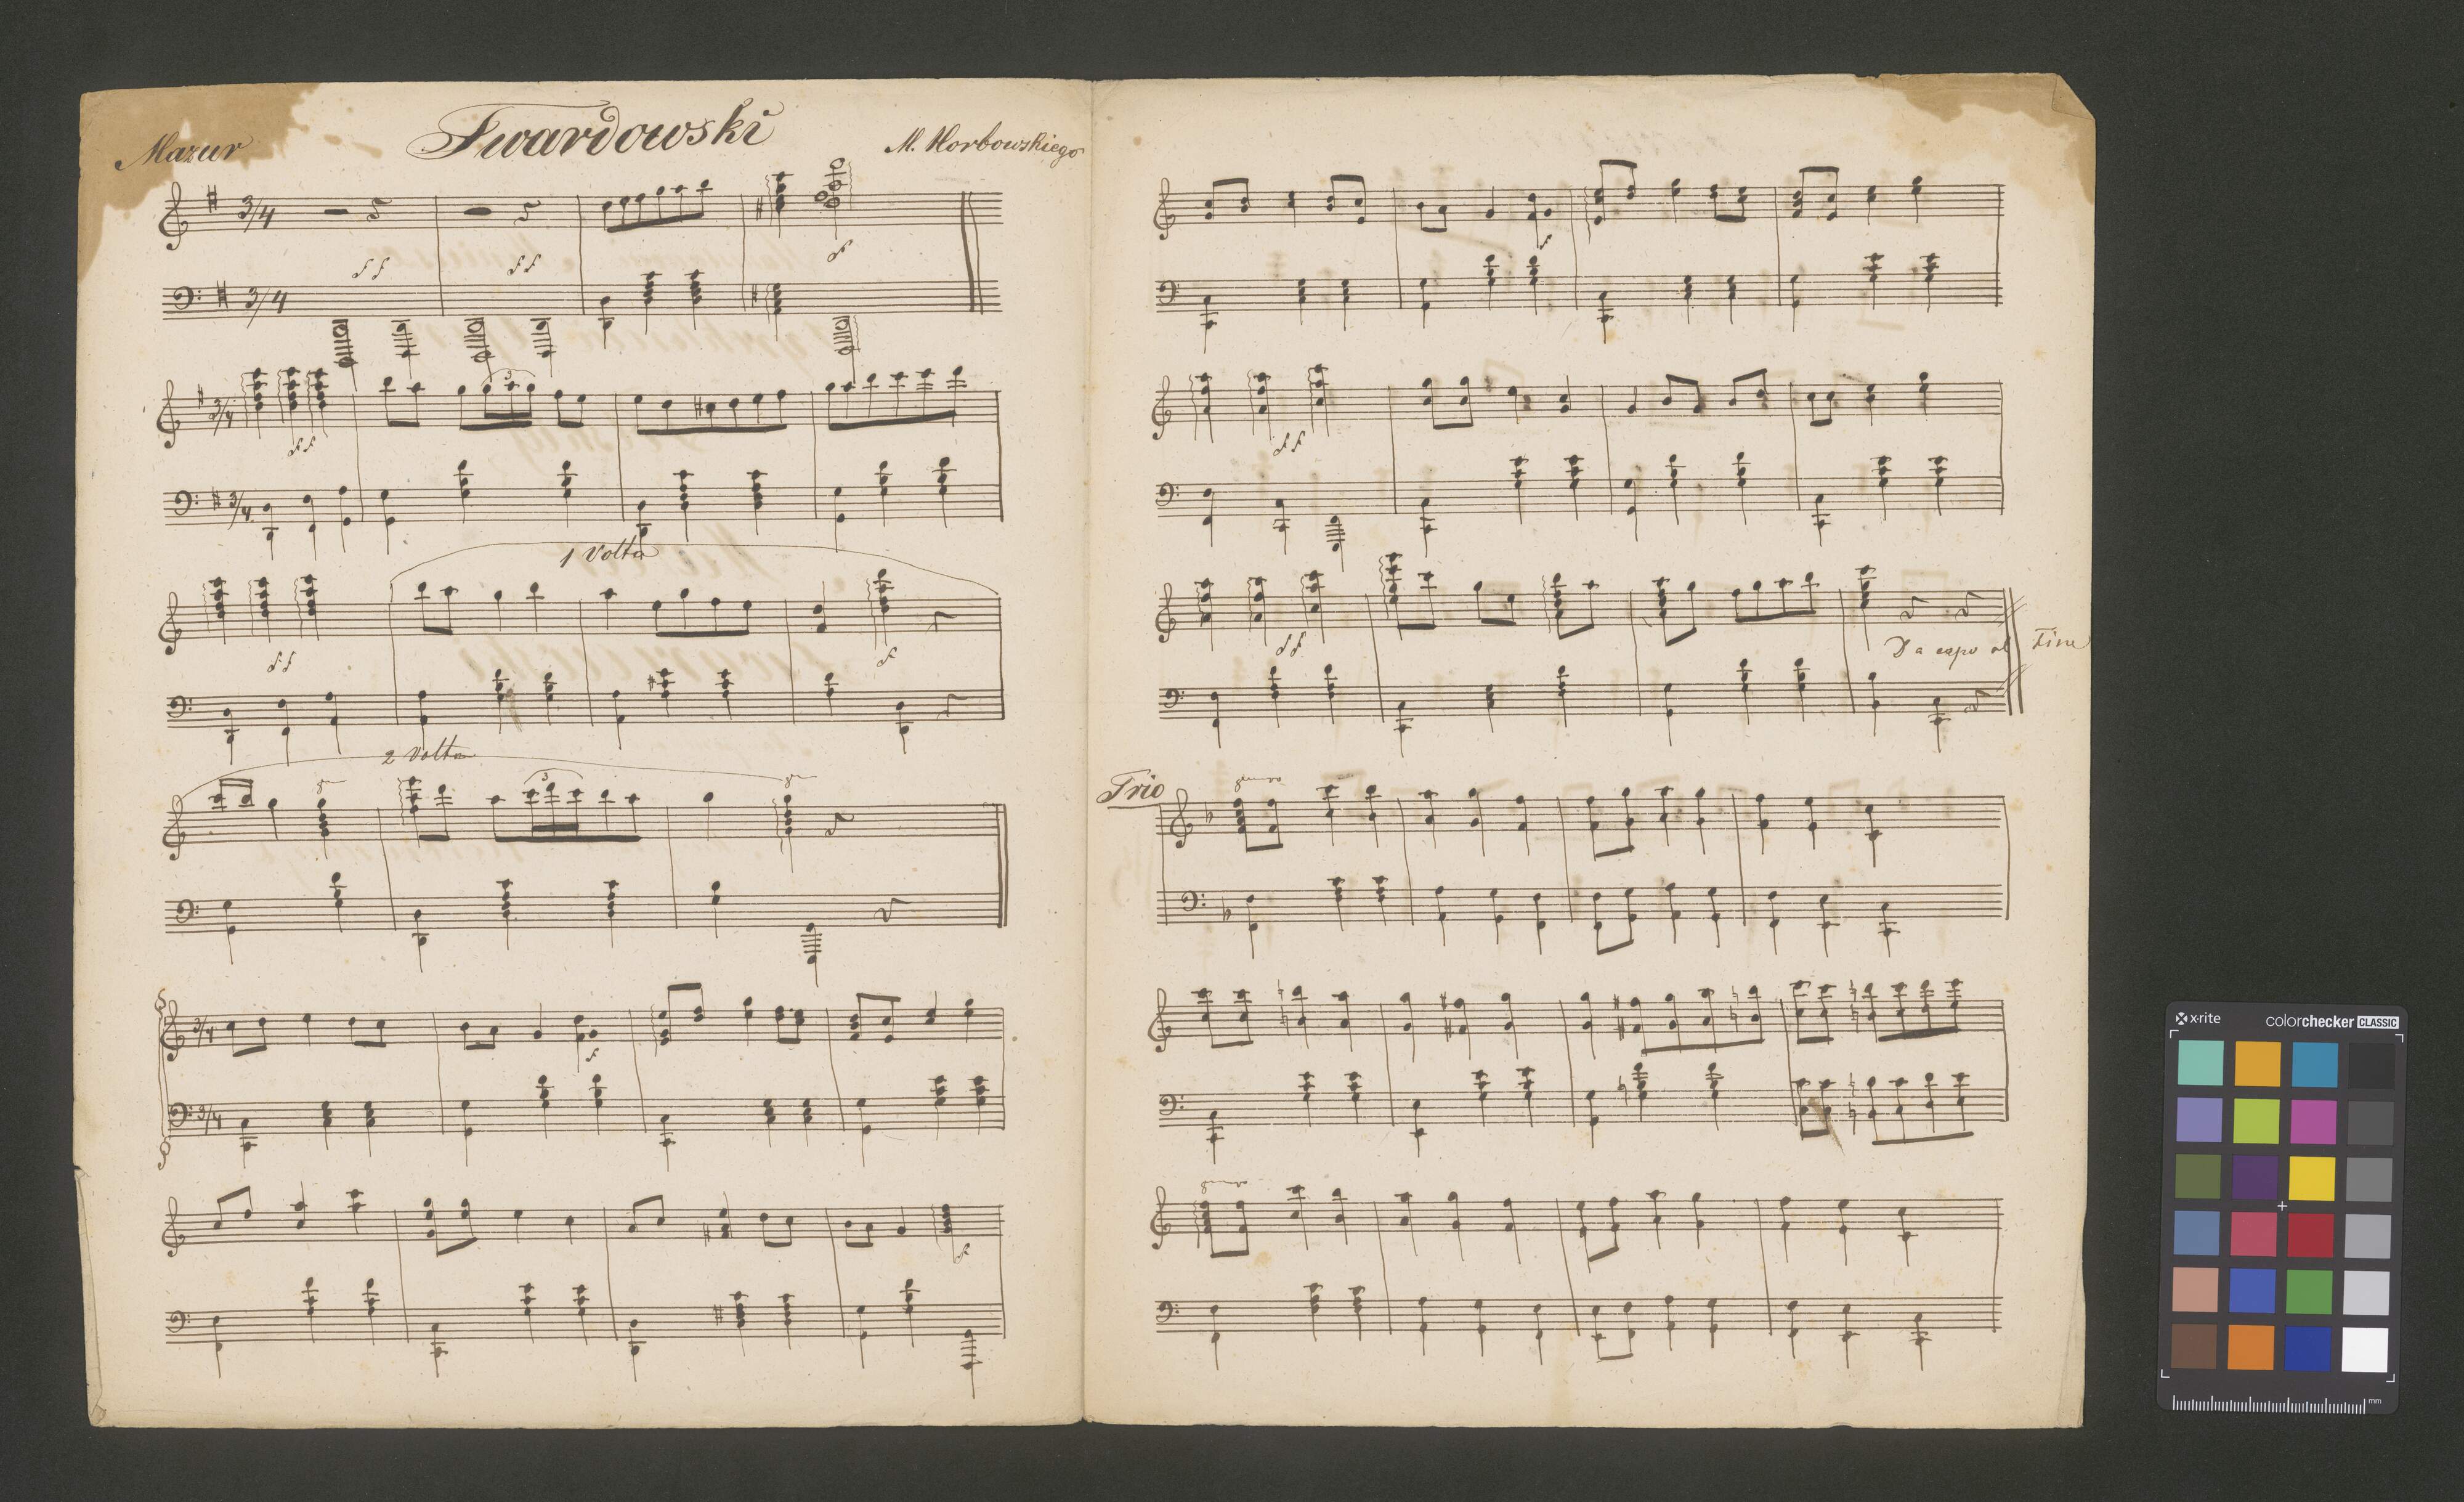 Mazur
Twardowski
M. Horbowskiego
3/4
3/4
ff
ff
f
3/4
3/4
3
ff
1 Volta
ff
f
2 Volta
3
3/4
3/4
f
f
f
ff
ff
Da capo al Fine
Trio
x-rite
colorchecker CLASSIC
mm